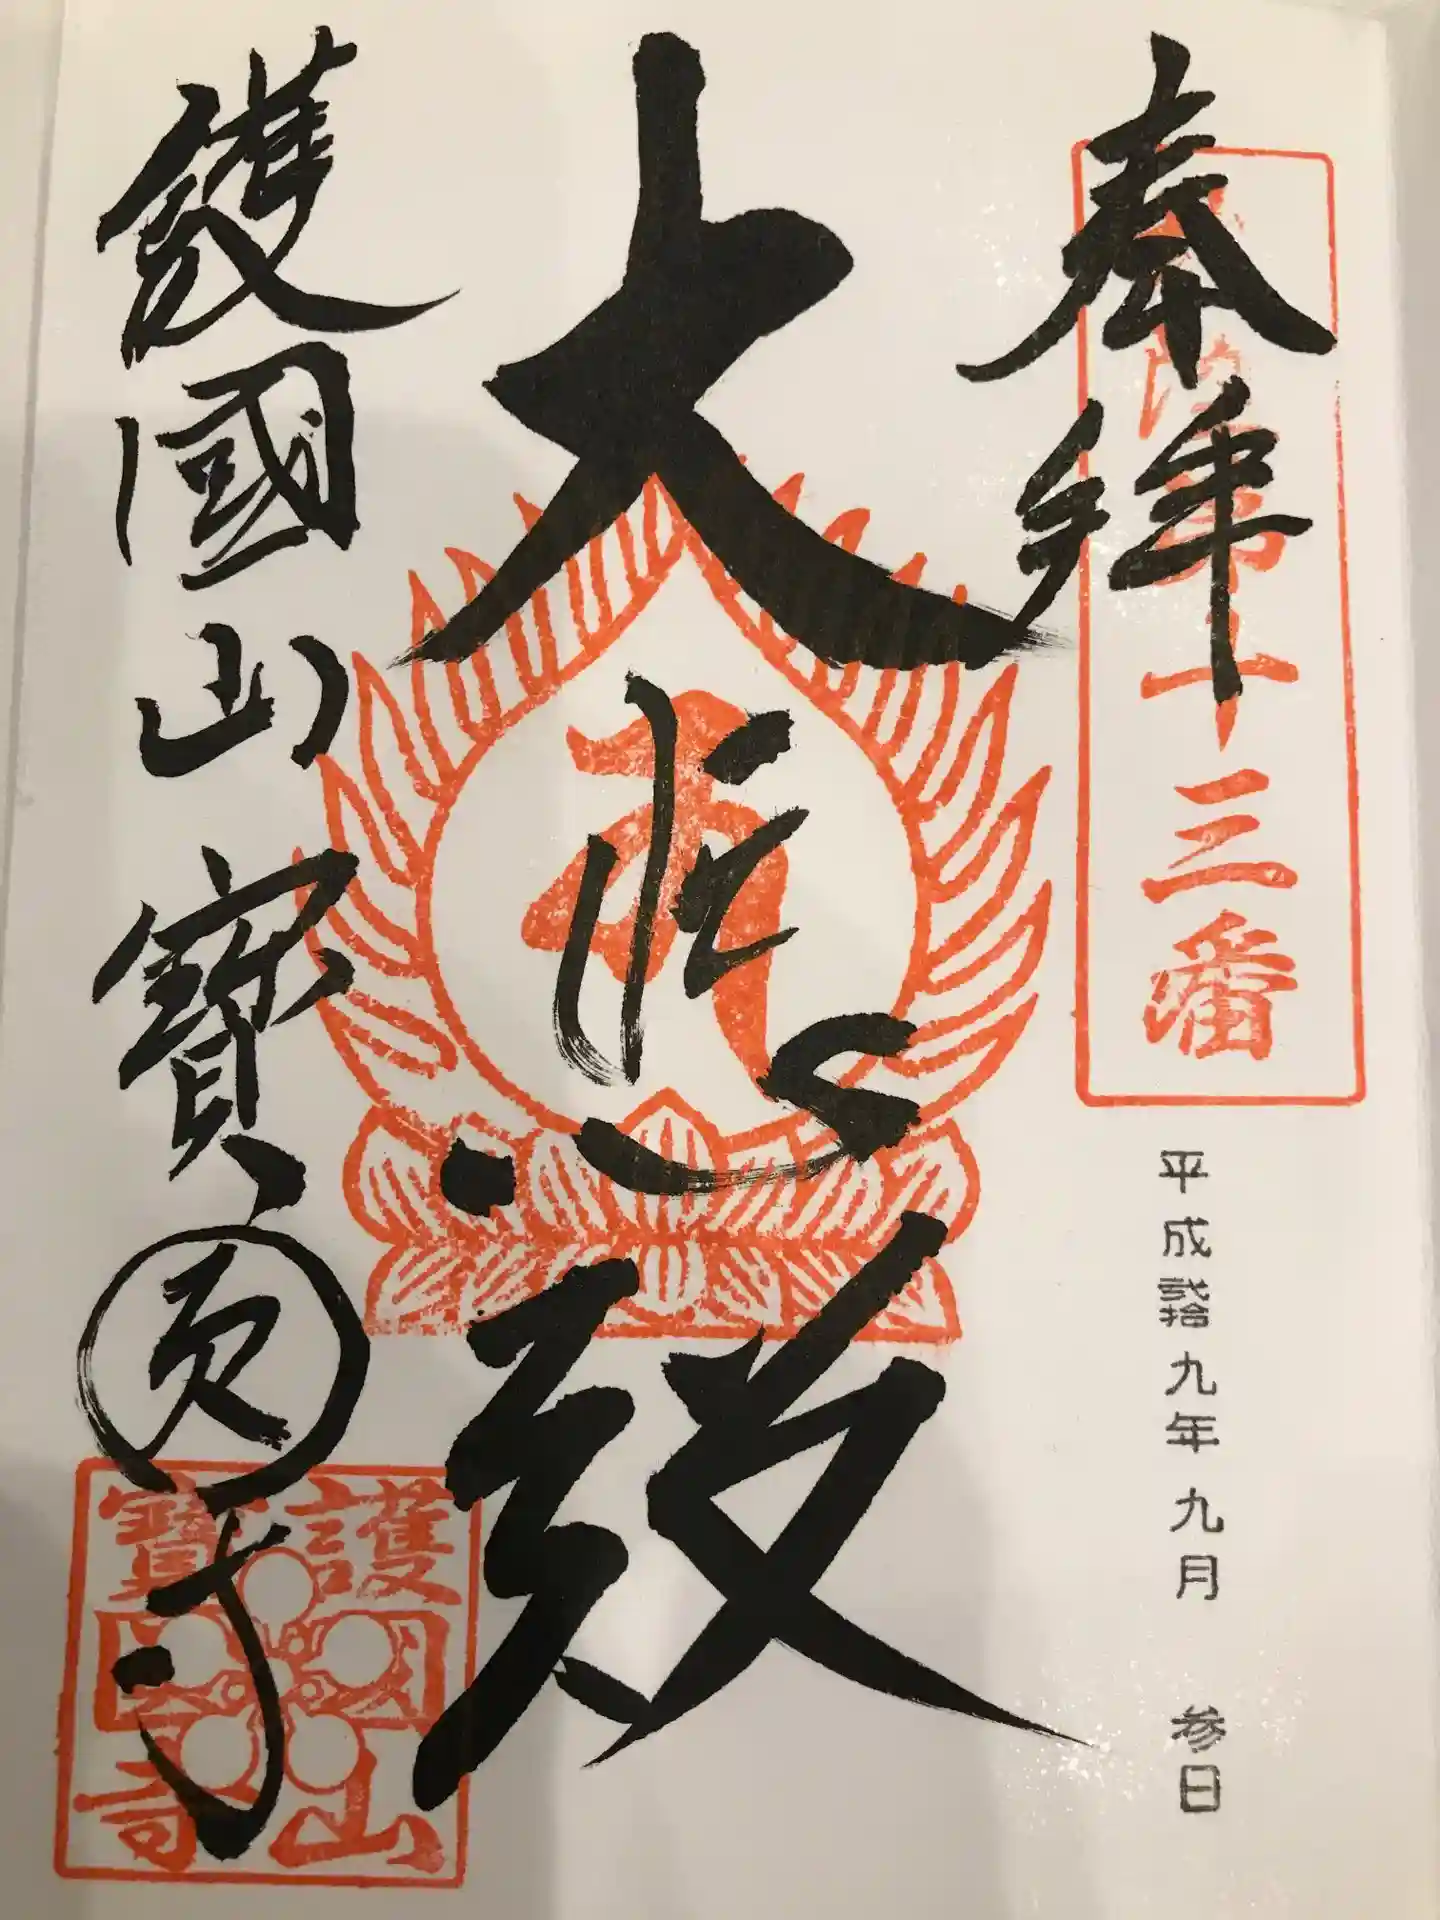 奉拜
第十三番
平成弐拾九年九月 参日
大悲殿
護國山寶圓寺
護國山
寶圓寺